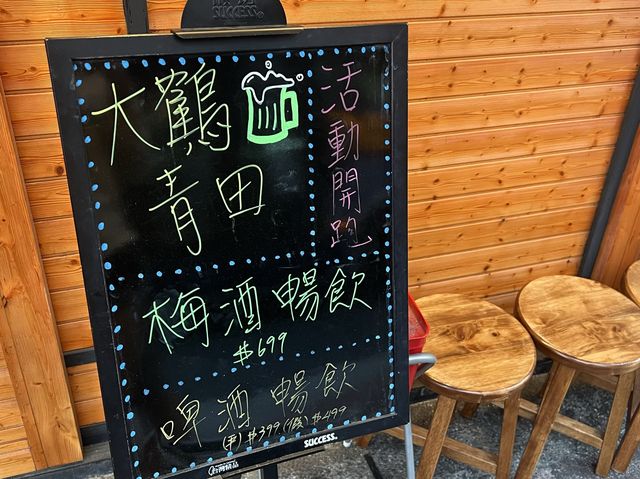 SUCCESS
大鶴
青田
活動開跑
梅酒暢飲
$699
啤酒暢飲
(平)$399(假)$499
SUCCESS.